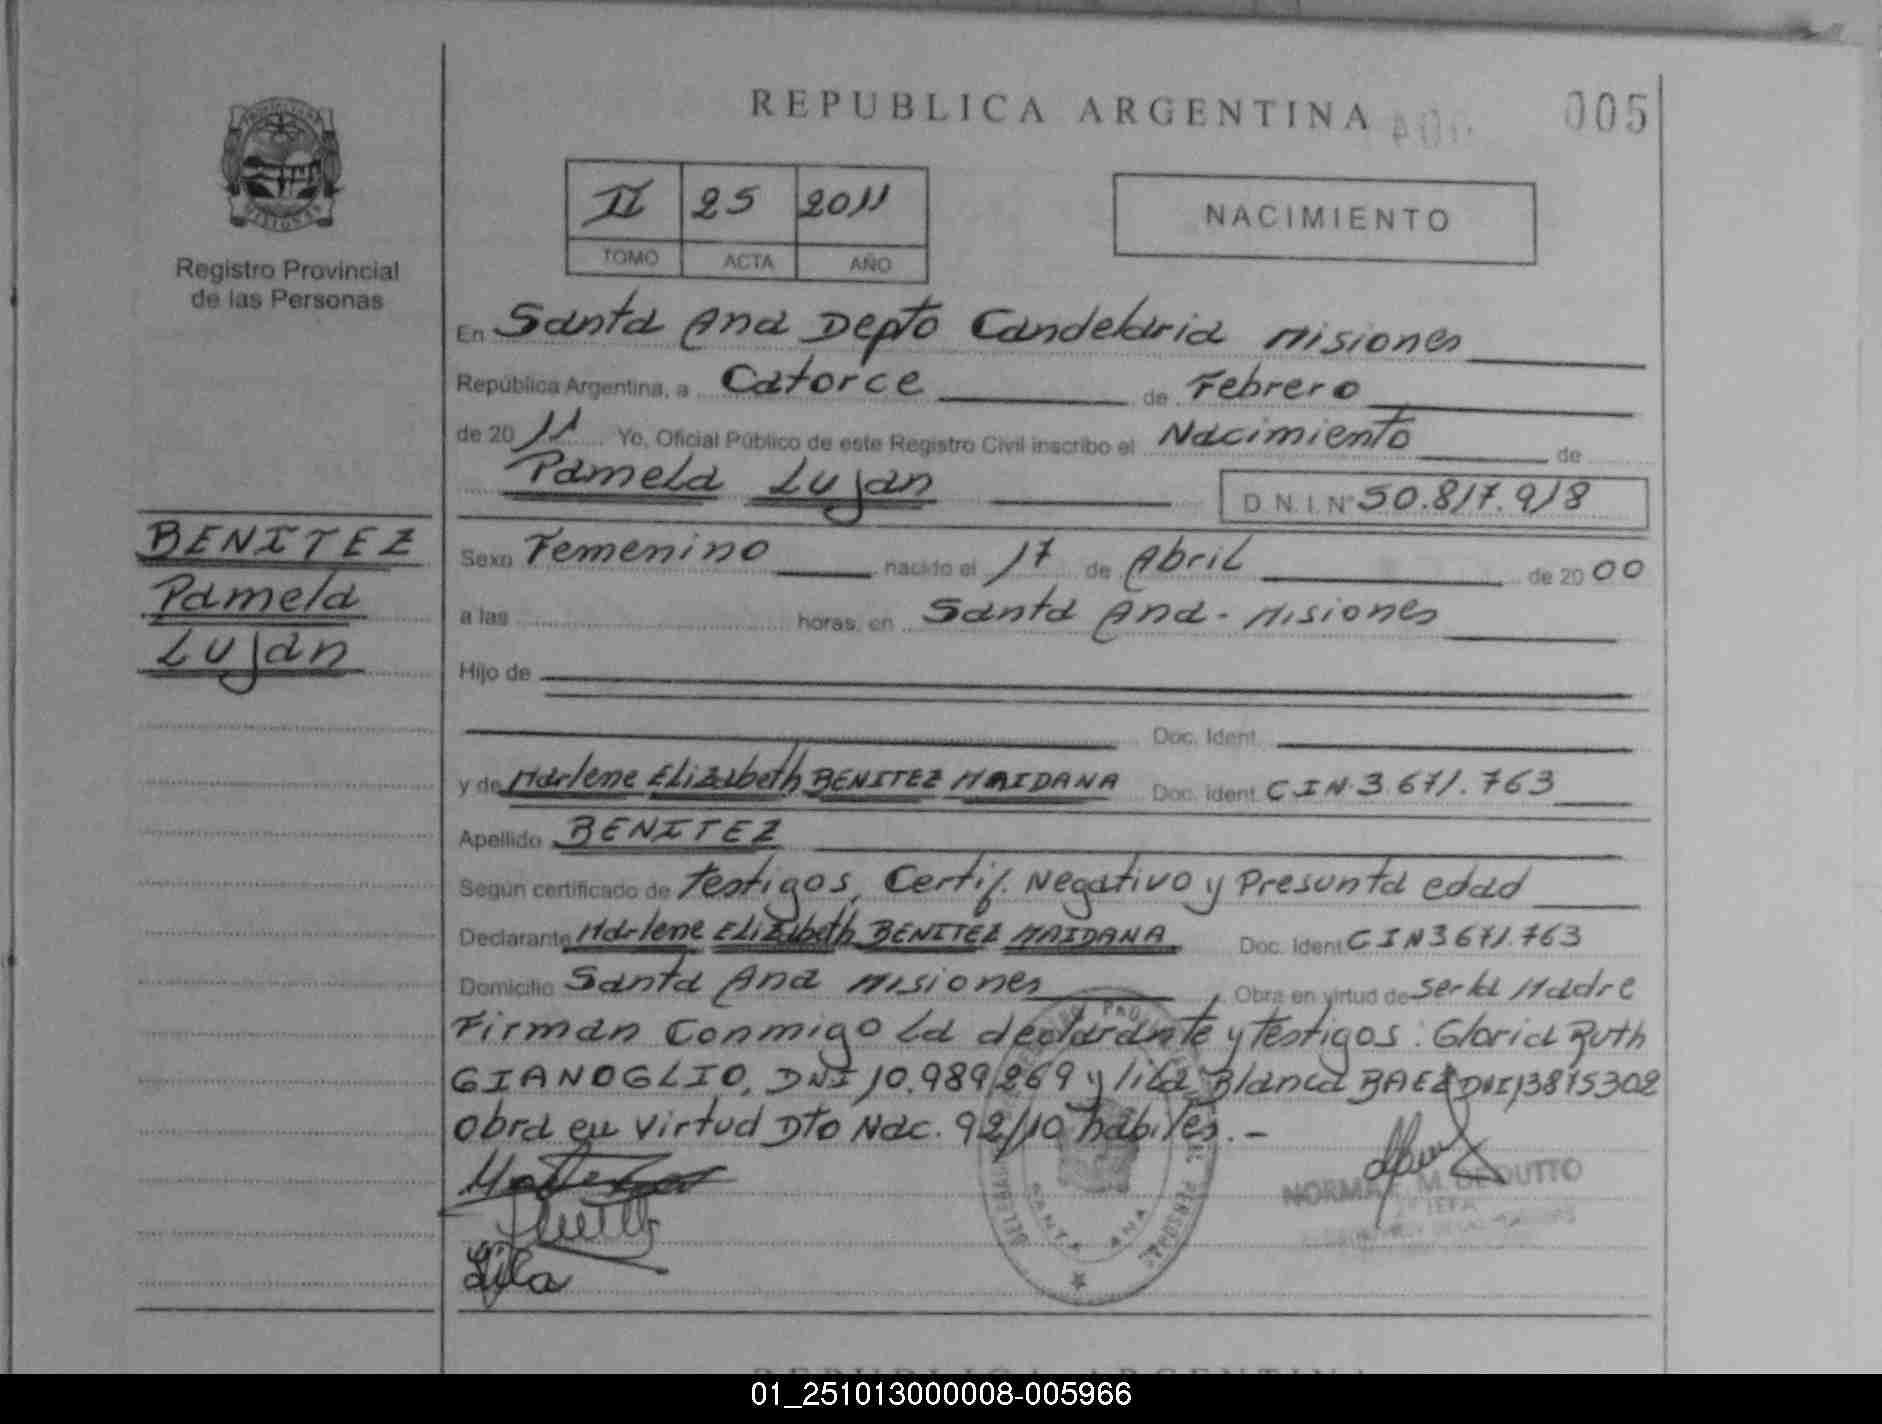 REPUBLICA ARGENTINA
005
II 25 2011
TOMO ACTA AÑO
NACIMIENTO
Registro Provincial
de las Personas
En Santa Ana Depto Candelaria Misiones
República Argentina, a Catorce de Febrero
de 2011 Yo, Oficial Público de este Registro Civil inscribo el Nacimiento de
Pamela Lujan D.N.I. Nº 50.817.918
BENITEZ
Pamela
Lujan
Sexo Femenino nacido el 17 de Abril de 2000
a las horas, en Santa Ana - Misiones
Hijo de
Doc. Ident.
y de Marlene Elizabeth BENITEZ MAIDANA Doc. Ident. C I N. 3.671.763
Apellido BENITEZ
Según certificado de Testigos, Certif. Negativo y Presunta edad
Declarante Marlene Elizabeth BENITEZ MAIDANA Doc. Ident C I N 3671.763
Domicilio Santa Ana Misiones, Obra en virtud de ser la Madre
Firman Conmigo la declarante y Testigos: Gloria Ruth
GIANOGLIO, DNI 10.989.269 y lila Blanca BAEZ DNI 13875302
Obra en Virtud Dto Nac. 92/10 habiles. -
SANTA ANA
NORMA M. DEDUTTO
Lila
01_251013000008-005966